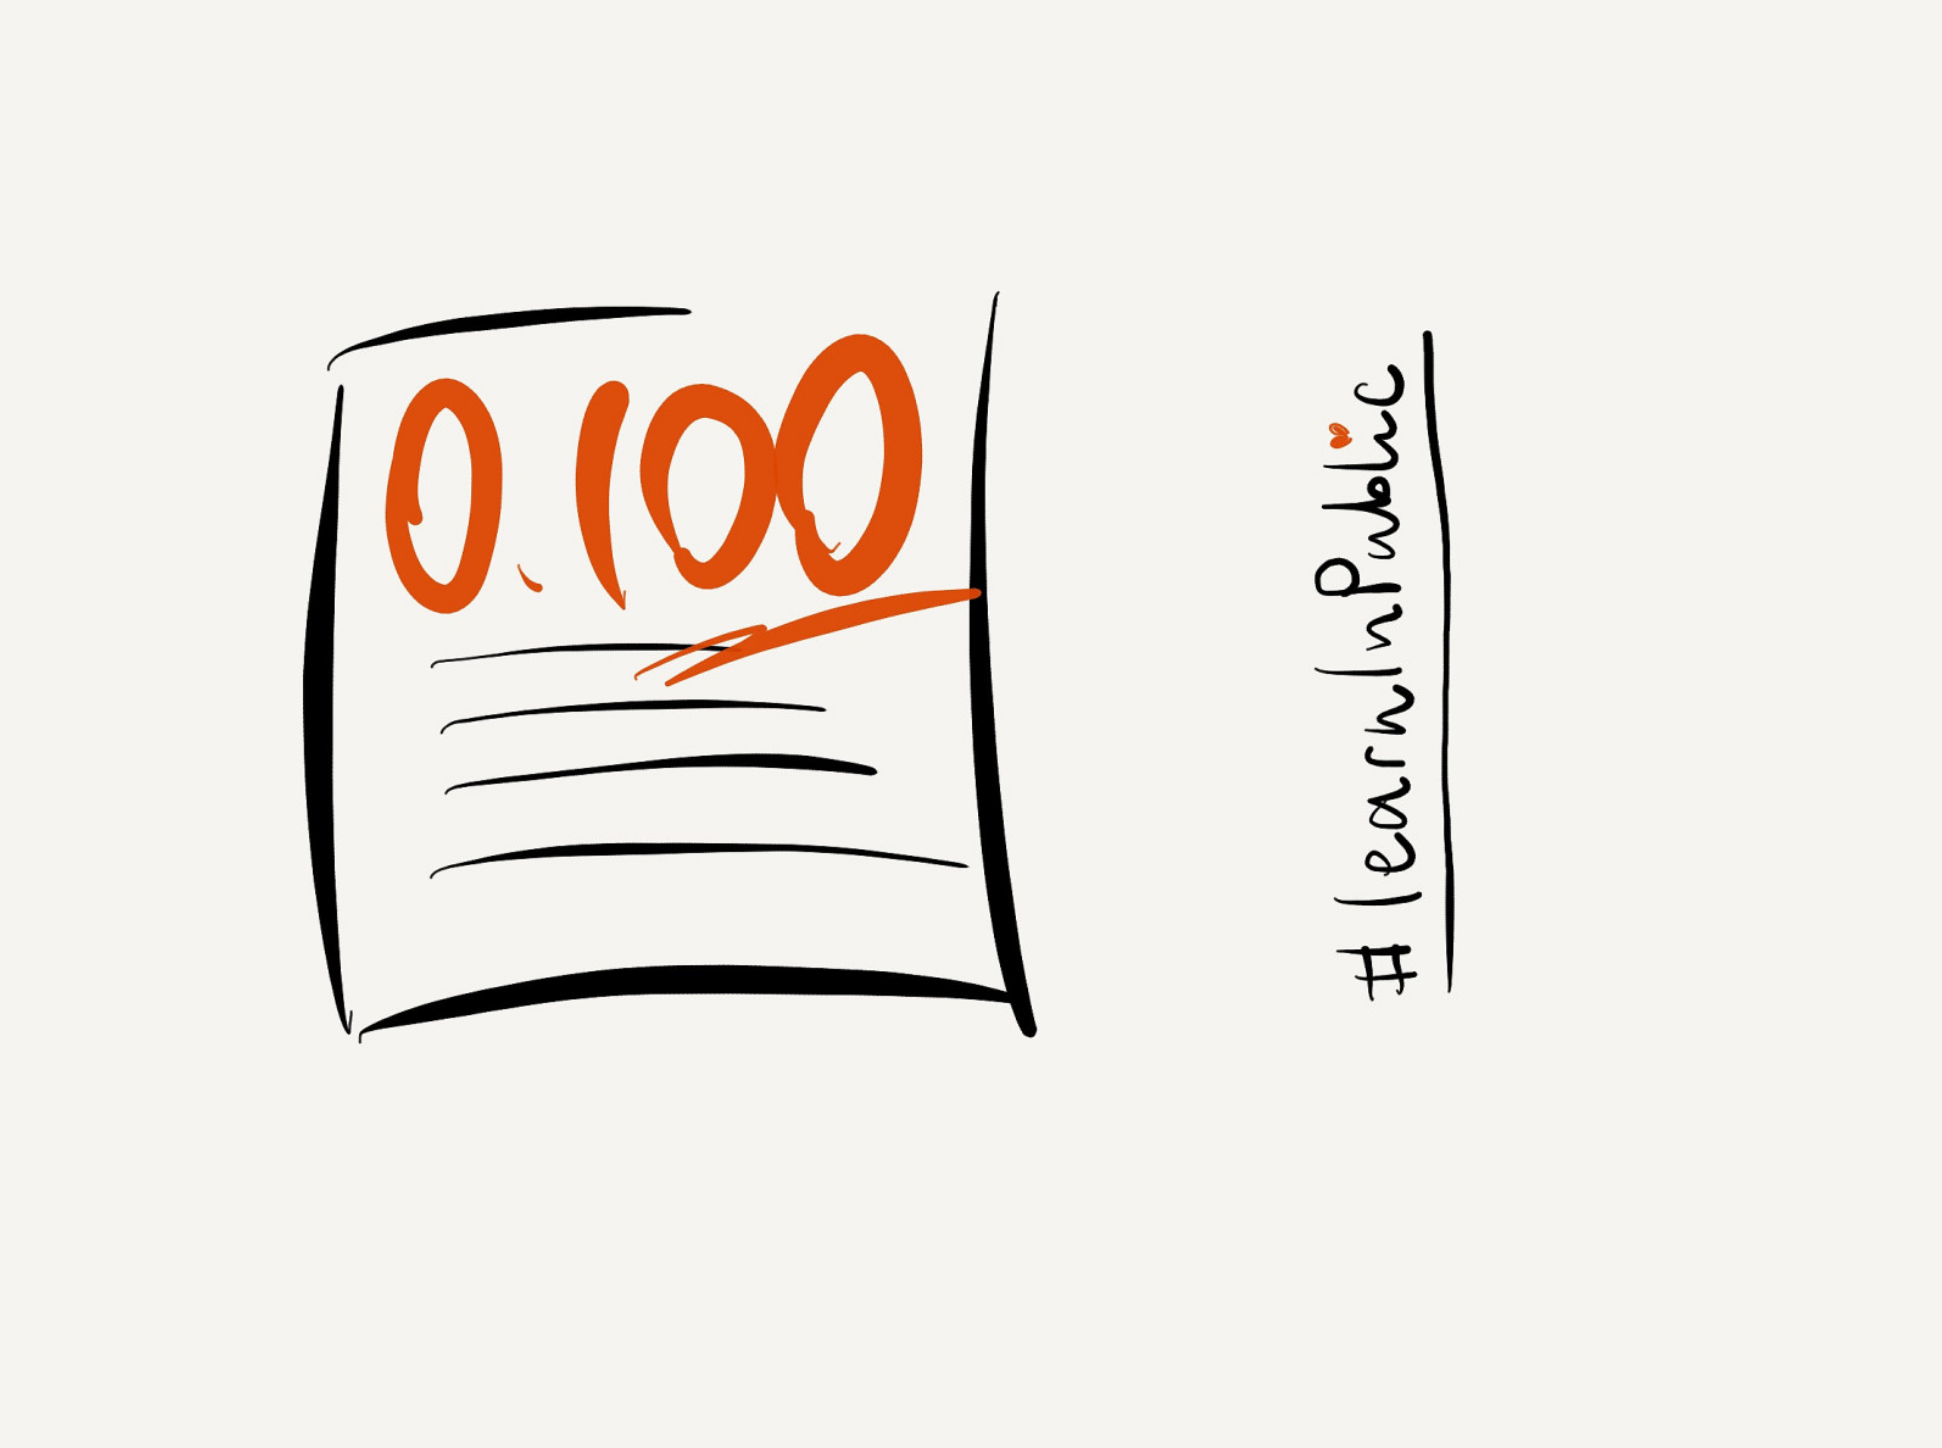 0.100
#learnInPublic